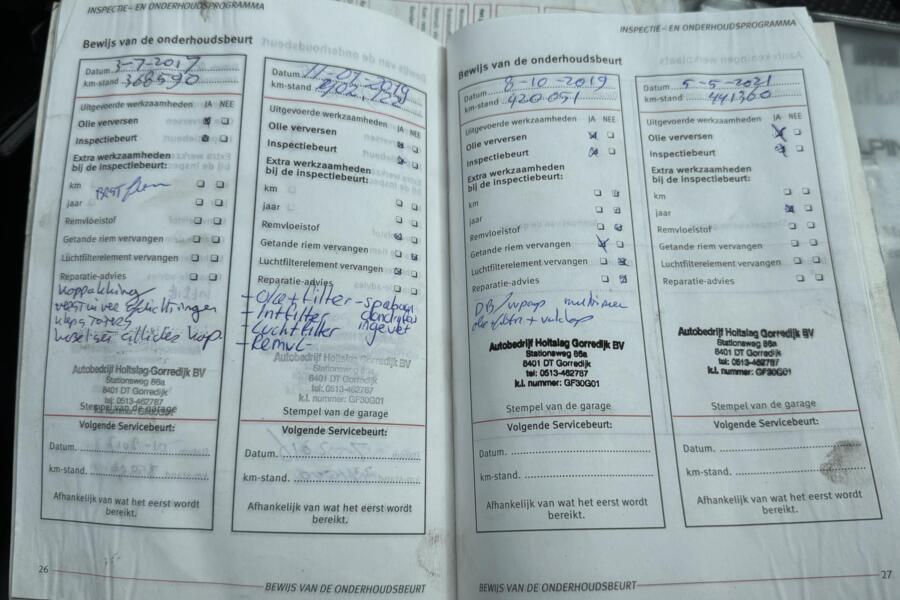 INSPECTIE- EN ONDERHOUDSPROGRAMMA
Bewijs van de onderhoudsbeurt
Datum 3-7-2017
km-stand 368590
Uitgevoerde werkzaamheden JA NEE
Olie verversen
Inspectiebeurt
Extra werkzaamheden
bij de inspectiebeurt:
km
jaar
Remvloeistof
Getande riem vervangen
Luchtfilterelement vervangen
Reparatie-advies
koppakking
Autobedrijf Holtslag Gorredijk BV
Stationsweg 86a
8401 DT Gorredijk
tel: 0513-462787
Stempel van de garage
Volgende Servicebeurt:
Datum.
km-stand.
Afhankelijk van wat het eerst wordt
bereikt.
26
Datum
km-stand
Uitgevoerde werkzaamheden JA NEE
Olie verversen
Inspectiebeurt
Extra werkzaamheden
bij de inspectiebeurt:
km
jaar
Remvloeistof
Getande riem vervangen
Luchtfilterelement vervangen
Reparatie-advies
- Olie + filter
- Intfilter
- Luchtfilter
- Remvl-
Autobedrijf Holtslag Gorredijk BV
Stationsweg 86a
8401 DT Gorredijk
tel: 0513-462787
k.l. nummer: GF30G01
Stempel van de garage
Volgende Servicebeurt:
Datum.
km-stand.
Afhankelijk van wat het eerst wordt
bereikt.
BEWIJS VAN DE ONDERHOUDSBEURT
INSPECTIE- EN ONDERHOUDSPROGRAMMA
Bewijs van de onderhoudsbeurt
Datum 8-10-2019
km-stand 420.051
Uitgevoerde werkzaamheden JA NEE
Olie verversen
Inspectiebeurt
Extra werkzaamheden
bij de inspectiebeurt:
km
jaar
Remvloeistof
Getande riem vervangen
Luchtfilterelement vervangen
Reparatie-advies
Autobedrijf Holtslag Gorredijk BV
Stationsweg 86a
8401 DT Gorredijk
tel: 0513-462787
k.l. nummer: GF30G01
Stempel van de garage
Volgende Servicebeurt:
Datum.
km-stand.
Afhankelijk van wat het eerst wordt
bereikt.
BEWIJS VAN DE ONDERHOUDSBEURT
Datum 5-5-2021
km-stand 441360
Uitgevoerde werkzaamheden JA NEE
Olie verversen
Inspectiebeurt
Extra werkzaamheden
bij de inspectiebeurt:
km
jaar
Remvloeistof
Getande riem vervangen
Luchtfilterelement vervangen
Reparatie-advies
Autobedrijf Holtslag Gorredijk BV
Stationsweg 86a
8401 DT Gorredijk
tel: 0513-462787
k.l. nummer: GF30G01
Stempel van de garage
Volgende Servicebeurt:
Datum.
km-stand.
Afhankelijk van wat het eerst wordt
bereikt.
27